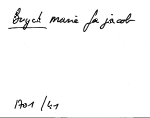 Bryck marie fa jacob
1701 / 41